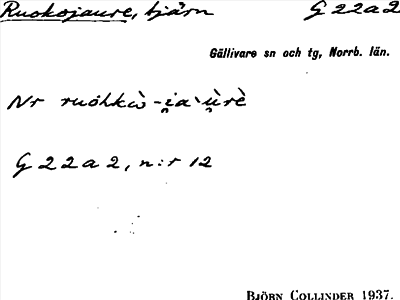 Ruokojaure, tjärn G 22 a 2
Gällivare sn och tg, Norrb. län.
Nr ruöhkὼ-i̯a`ùrè
G 22 a 2, n:r 12
BJÖRN COLLINDER 1937.